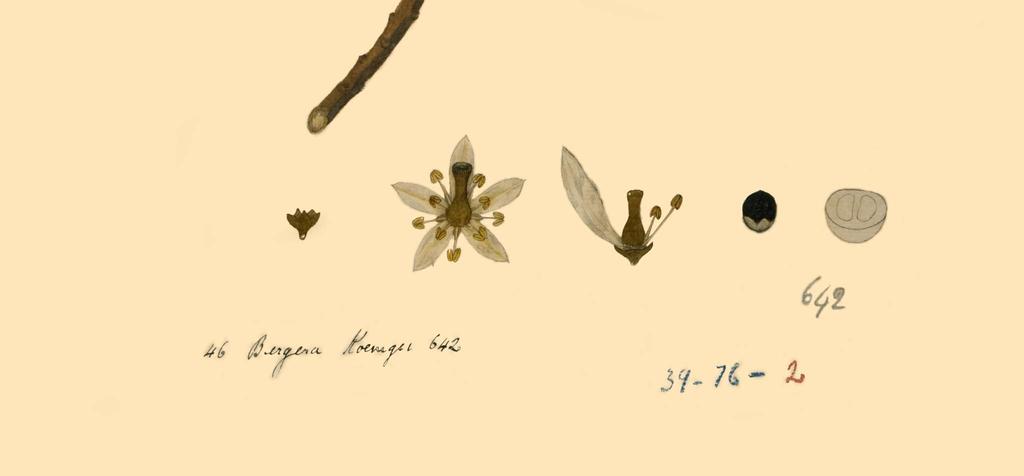 642
46 Bergera Koenigii 642
39-76-2